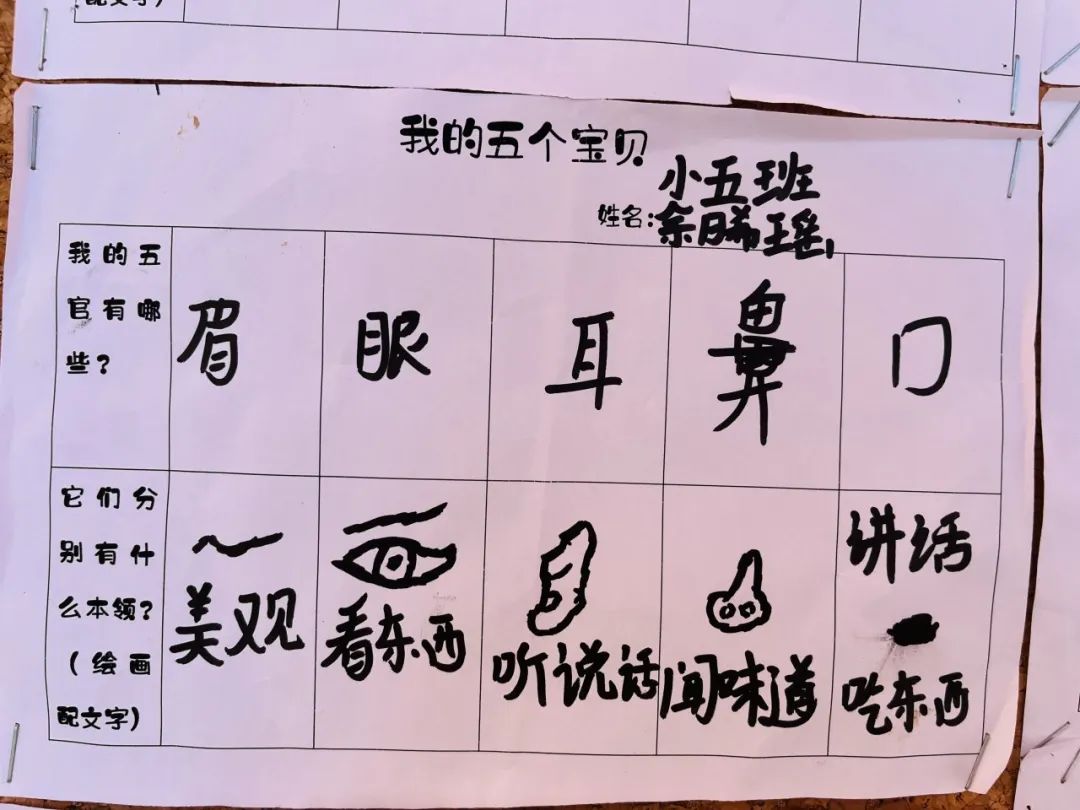 配文字)
我的五个宝贝
小五班
姓名:余晞瑶
我的五
官有哪
些?
眉
眼
耳
鼻
口
它们分
别有什
么本领?
(绘画
配文字)
美观
看东西
听说话
闻味道
讲话
吃东西